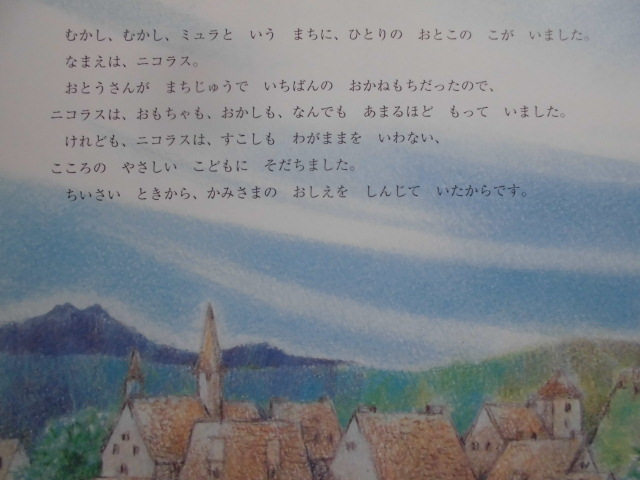 むかし、むかし、ミュラと　いう　まちに、ひとりの　おとこの　こが　いました。
なまえは、ニコラス。
おとうさんが　まちじゅうで　いちばんの　おかねもちだったので、
ニコラスは、おもちゃも、おかしも、なんでも　あまるほど　もって　いました。
けれども、ニコラスは、すこしも　わがままを　いわない、
こころの　やさしい　こどもに　そだちました。
ちいさい　ときから、かみさまの　おしえを　しんじて　いたからです。